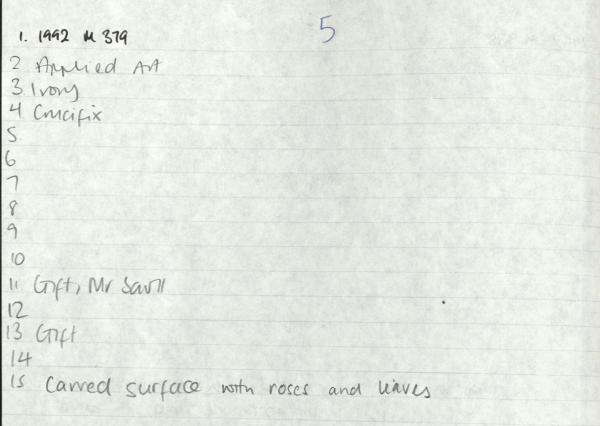 5
1. 1992 M 379
2 Applied Art
3 Ivory
4 Crucifix
5
6
7
8
9
10
11 Gift, Mr Savill
12
13 Gift
14
15 Carved surface with roses and leaves